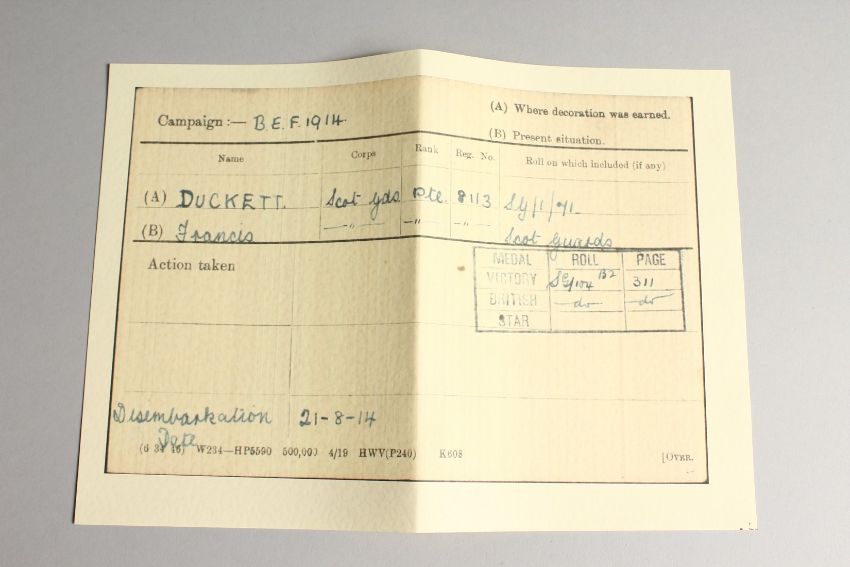 (A) Where decoration was earned.
Campaign :— B.E.F. 1914.
(B) Present situation.
Name Corps Rank Reg. No. Roll on which included (if any)
(A) DUCKETT. Scot Gds Pte. 8113 SG/1/71
(B) Francis —"— —"— —"— Scot Guards
Action taken
MEDAL ROLL PAGE
VICTORY SG/104 B2 311
BRITISH —do— —do—
STAR
Disembarkation 21-8-14
Date
(6 34 46) W234—HP5590 500,000 4/19 HWV(P240) K608 [OVER.